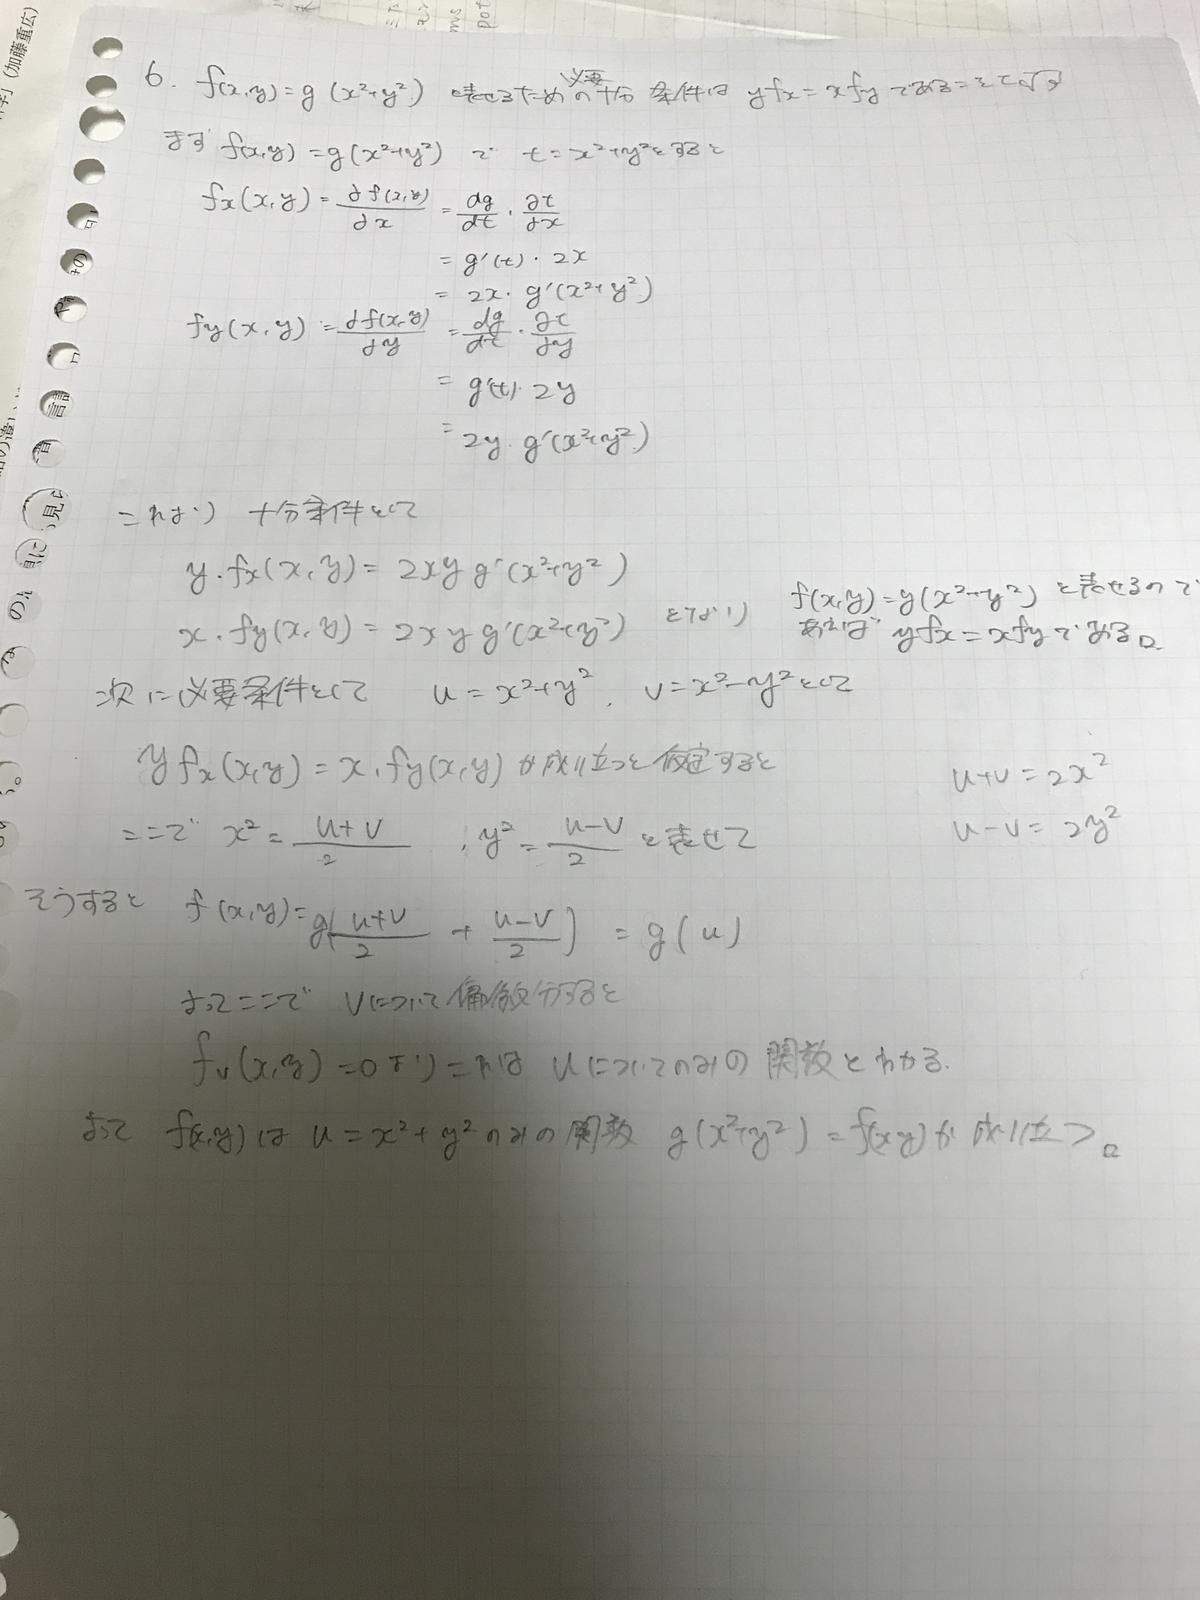 (加藤重広)
6. f(x,y)=g(x²+y²) と表せるための必要十分条件は yfx=xfyであることを示す
まず f(x,y)=g(x²+y²) で t=x²+y²とすると
fx(x,y)=∂f(x,y)/∂x = dg/dt・∂t/∂x
= g'(t)・2x
= 2x・g'(x²+y²)
fy(x,y)=∂f(x,y)/∂y = dg/dt・∂t/∂y
= g'(t)・2y
= 2y・g'(x²+y²)
これより 十分条件として
y・fx(x,y)=2xy g'(x²+y²)
x・fy(x,y)=2xy g'(x²+y²) となり
f(x,y)=g(x²+y²) と表せるので
あれば yfx=xfyである□
次に必要条件として u=x²+y², v=x²-y²として
yfx(x,y)=x・fy(x,y)が成り立つと仮定すると
u+v=2x²
u-v=2y²
ここで x²=(u+v)/2 , y²=(u-v)/2 と表せて
そうすると f(x,y)=g((u+v)/2 + (u-v)/2) = g(u)
よってここで vについて偏微分すると
fv(x,y)=0よりこれは uについてのみの関数とわかる.
よって f(x,y)は u=x²+y²のみの関数 g(x²+y²)=f(x,y)が成り立つ□